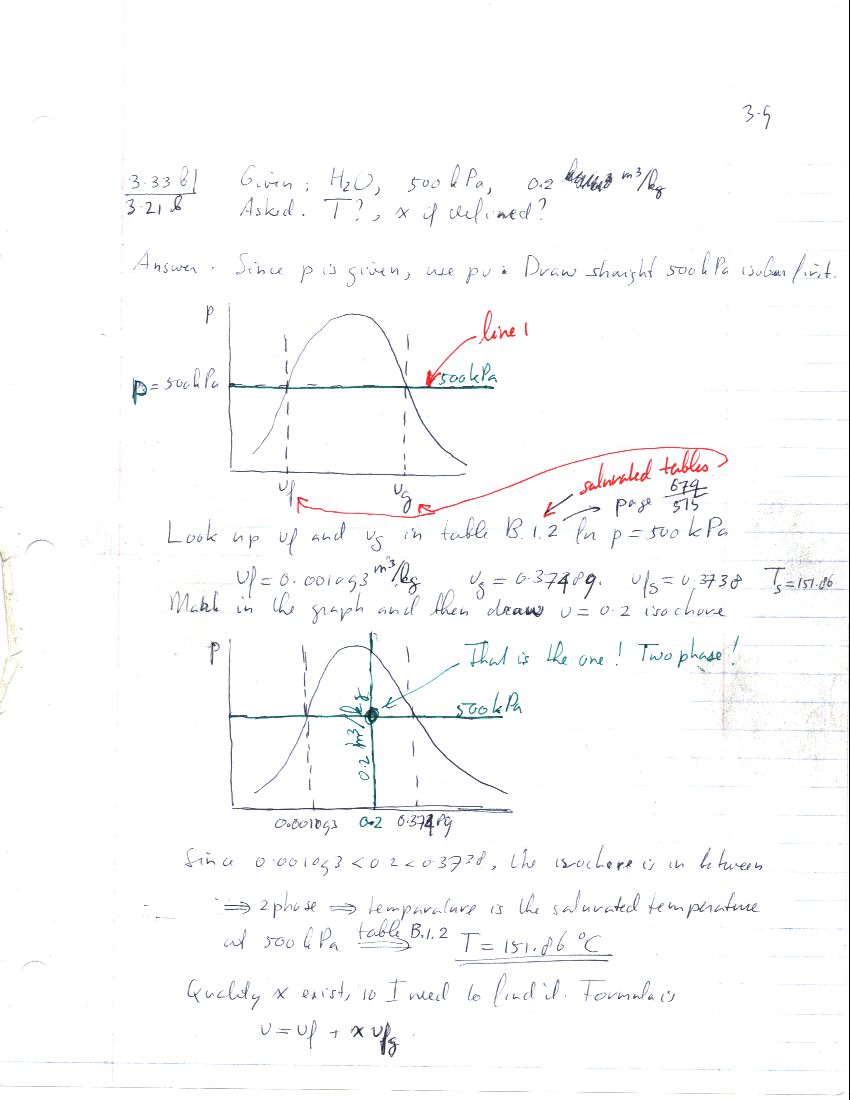 3-9
3.33 b)
3.21 b
Given: H2O, 500 kPa, 0.2 m³/kg
Asked. T?, x if defined?
Answer. Since p is given, use pv. Draw straight 500 kPa isobar first.
p
line 1
p = 500kPa
500kPa
vf
vg
saturated tables
page 679
515
Look up vf and vg in table B.1.2 for p = 500 kPa
vf = 0.001093 m³/kg vg = 0.37489. vfg = 0.3738 Ts = 151.86
Mark in the graph and then draw v = 0.2 isochore
p
That is the one! Two phase!
500kPa
0.2 m³/kg
0.001093 0.2 0.37489
Since 0.001093 < 0.2 < 0.3738, the isochore is in between
⇒ 2phase ⇒ temparature is the saturated temperature
at 500 kPa table B.1.2 T = 151.86 °C
Quality x exist, so I need to find it. Formula is
v = vf + x vfg